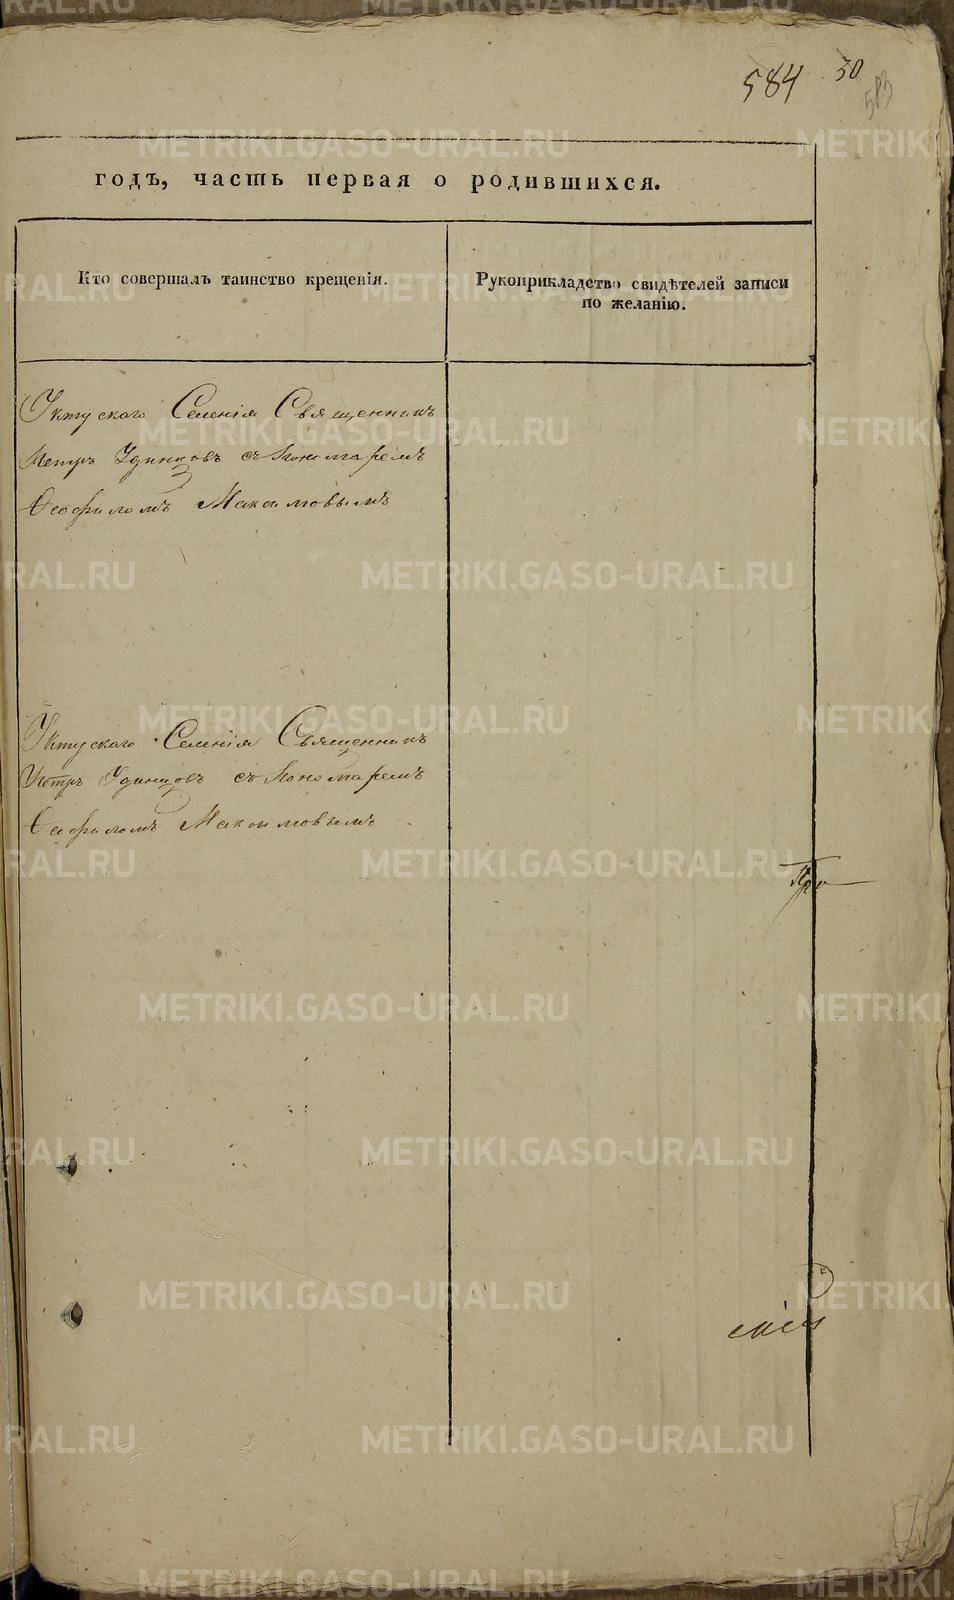 584 30
583
годъ, часть первая о родившихся.
Кто совершалъ таинство крещенія.
Рукоприкладство свидѣтелей записи
по желанію.
Уктускаго Селенія Священникъ
Петръ Удинцовъ съ Пономаремъ
Ѳеофиломъ Максимовымъ
Уктускаго Селенія Священникъ
Петръ Удинцовъ съ Пономаремъ
Ѳеофиломъ Максимовымъ
METRIKI.GASO-URAL.RU